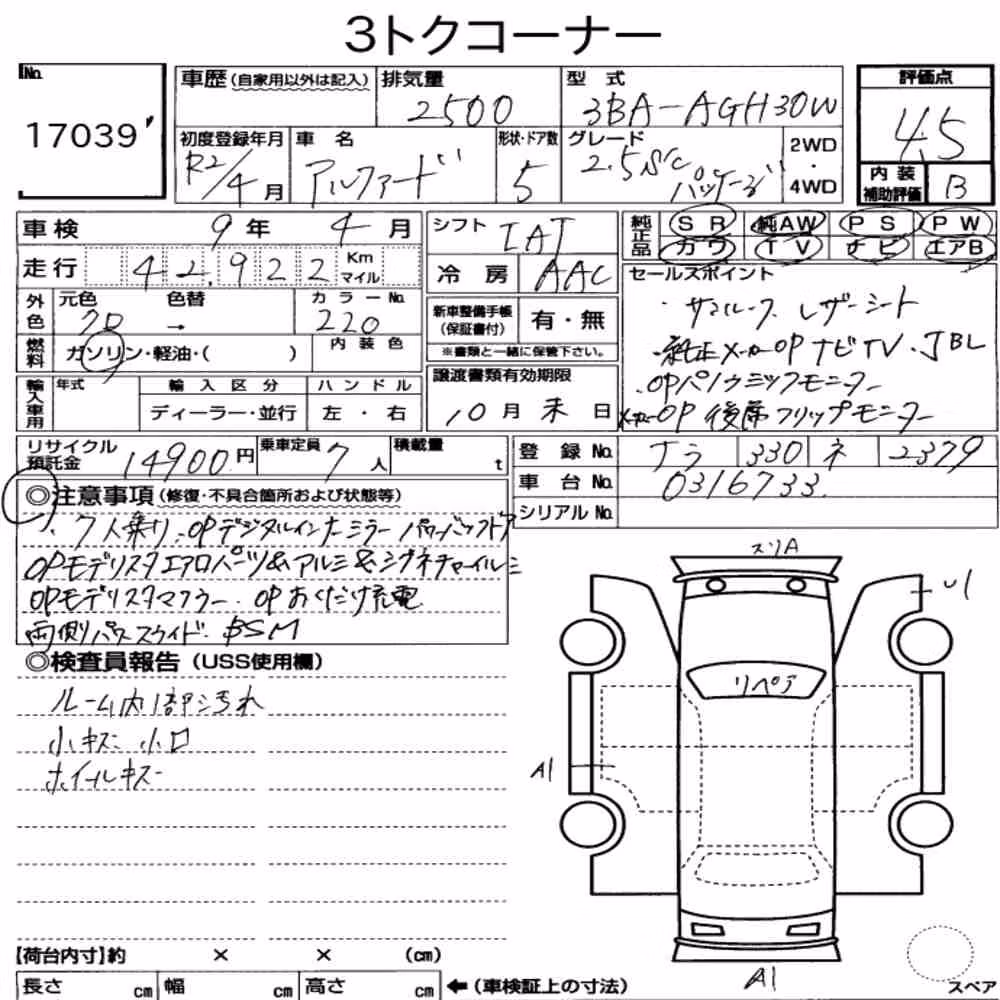 3トクコーナー
No. 17039
車歴(自家用以外は記入) 排気量 2500 型式 3BA-AGH30W 評価点 4.5
初度登録年月 R2/4月 車名 アルファード 形状・ドア数 5 グレード 2.5S/C パッケージ 2WD・4WD 内装補助評価 B
車検 9年 4月 シフト IAT 純正品 SR 純AW PS PW
カワ TV ナビ エアB
走行 42,922 Km マイル 冷房 AAC
外色 元色 クロ 色替 → カラーNo. 220
燃料 ガソリン・軽油・( ) 内装色
新車整備手帳(保証書付) 有・無
※書類と一緒に保管下さい。
輸入車用 年式 輸入区分 ディーラー・並行 ハンドル 左・右
譲渡書類有効期限 10月 末日
セールスポイント
・サンルーフ レザーシート
・純正メーカーOPナビTV・JBL
・OPパノラミックモニター
メーカーOP後席フリップモニター
リサイクル預託金 14900円 乗車定員 7人 積載量 t
登録No. ナラ 330 ネ 2379
車台No. 0316733
シリアルNo.
◎注意事項(修復・不具合箇所および状態等)
・7人乗り・OPデジタルインナーミラー パワーバックドア
OPモデリスタエアロパーツ&アルミ&シグネチャーイルミ
OPモデリスタマフラー・OPおくだけ充電
両側パワースライド・BSM
◎検査員報告(USS使用欄)
ルーム内1部汚れ
小キズ 小凹
ホイールキズ
スリA
U1
リペア
A1
A1
スペア
【荷台内寸】約 × × (cm)
長さ cm 幅 cm 高さ cm ←(車検証上の寸法)